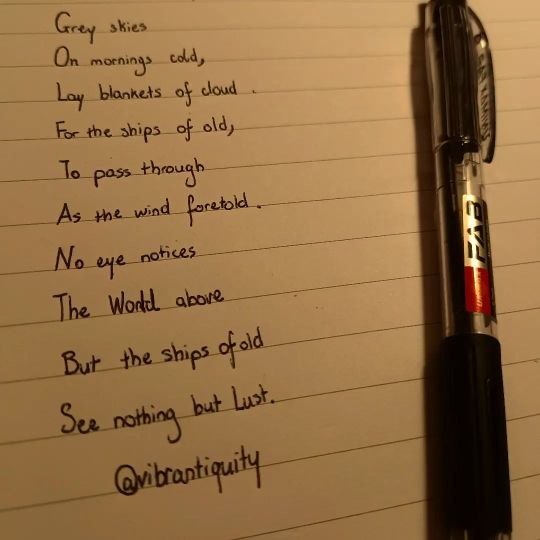 Grey skies
On mornings cold,
Lay blankets of cloud.
For the ships of old,
To pass through
As the wind foretold.
No eye notices
The World above
But the ships of old
See nothing but Lust.
@vibrantiquity
FAB